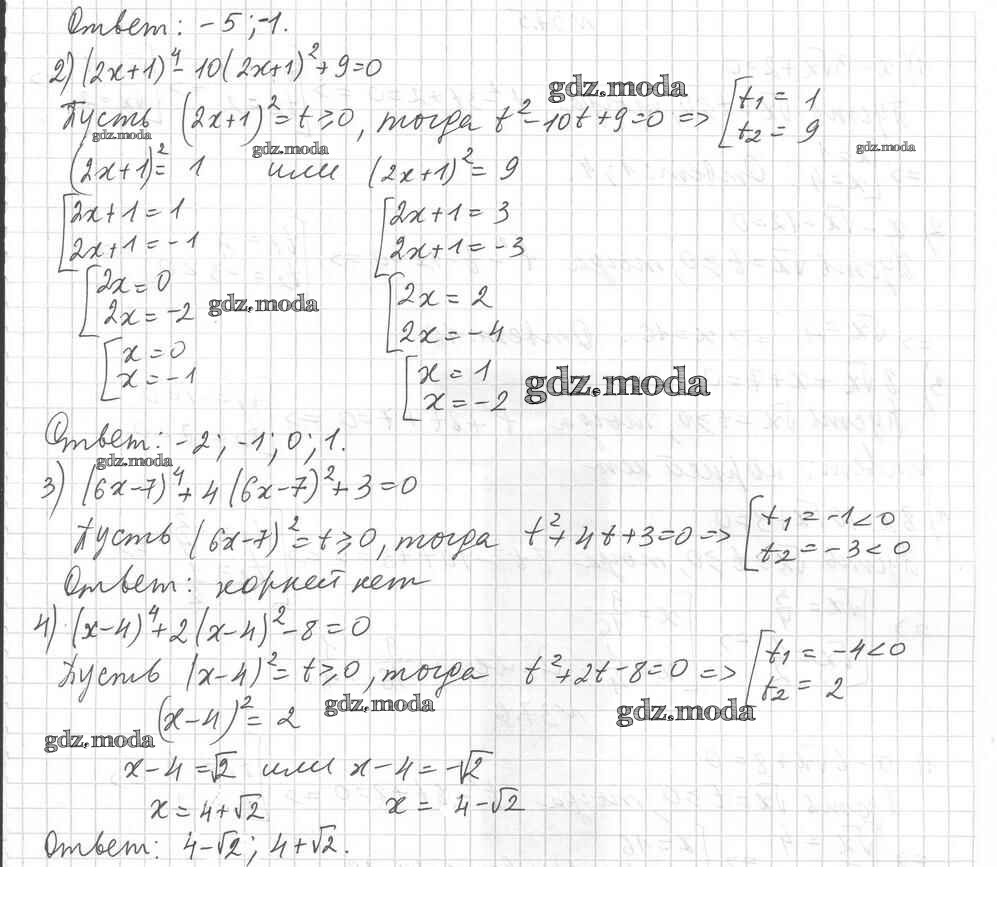 Ответ: -5; -1.
2) (2x+1)⁴ - 10(2x+1)² + 9 = 0
gdz.moda
Пусть (2x+1)² = t ≥ 0, тогда t² - 10t + 9 = 0 => [t₁ = 1
t₂ = 9
gdz.moda gdz.moda gdz.moda
(2x+1)² = 1 или (2x+1)² = 9
[2x+1 = 1 [2x+1 = 3
2x+1 = -1 2x+1 = -3
[2x = 0 [2x = 2
2x = -2 gdz.moda 2x = -4
[x = 0 [x = 1
x = -1 x = -2
gdz.moda
Ответ: -2; -1; 0; 1.
gdz.moda
3) (6x-7)⁴ + 4(6x-7)² + 3 = 0
Пусть (6x-7)² = t ≥ 0, тогда t² + 4t + 3 = 0 => [t₁ = -1 < 0
t₂ = -3 < 0
Ответ: корней нет
4) (x-4)⁴ + 2(x-4)² - 8 = 0
Пусть (x-4)² = t ≥ 0, тогда t² + 2t - 8 = 0 => [t₁ = -4 < 0
t₂ = 2
gdz.moda gdz.moda
(x-4)² = 2
gdz.moda
x-4 = √2 или x-4 = -√2
x = 4+√2 x = 4-√2
Ответ: 4-√2; 4+√2.